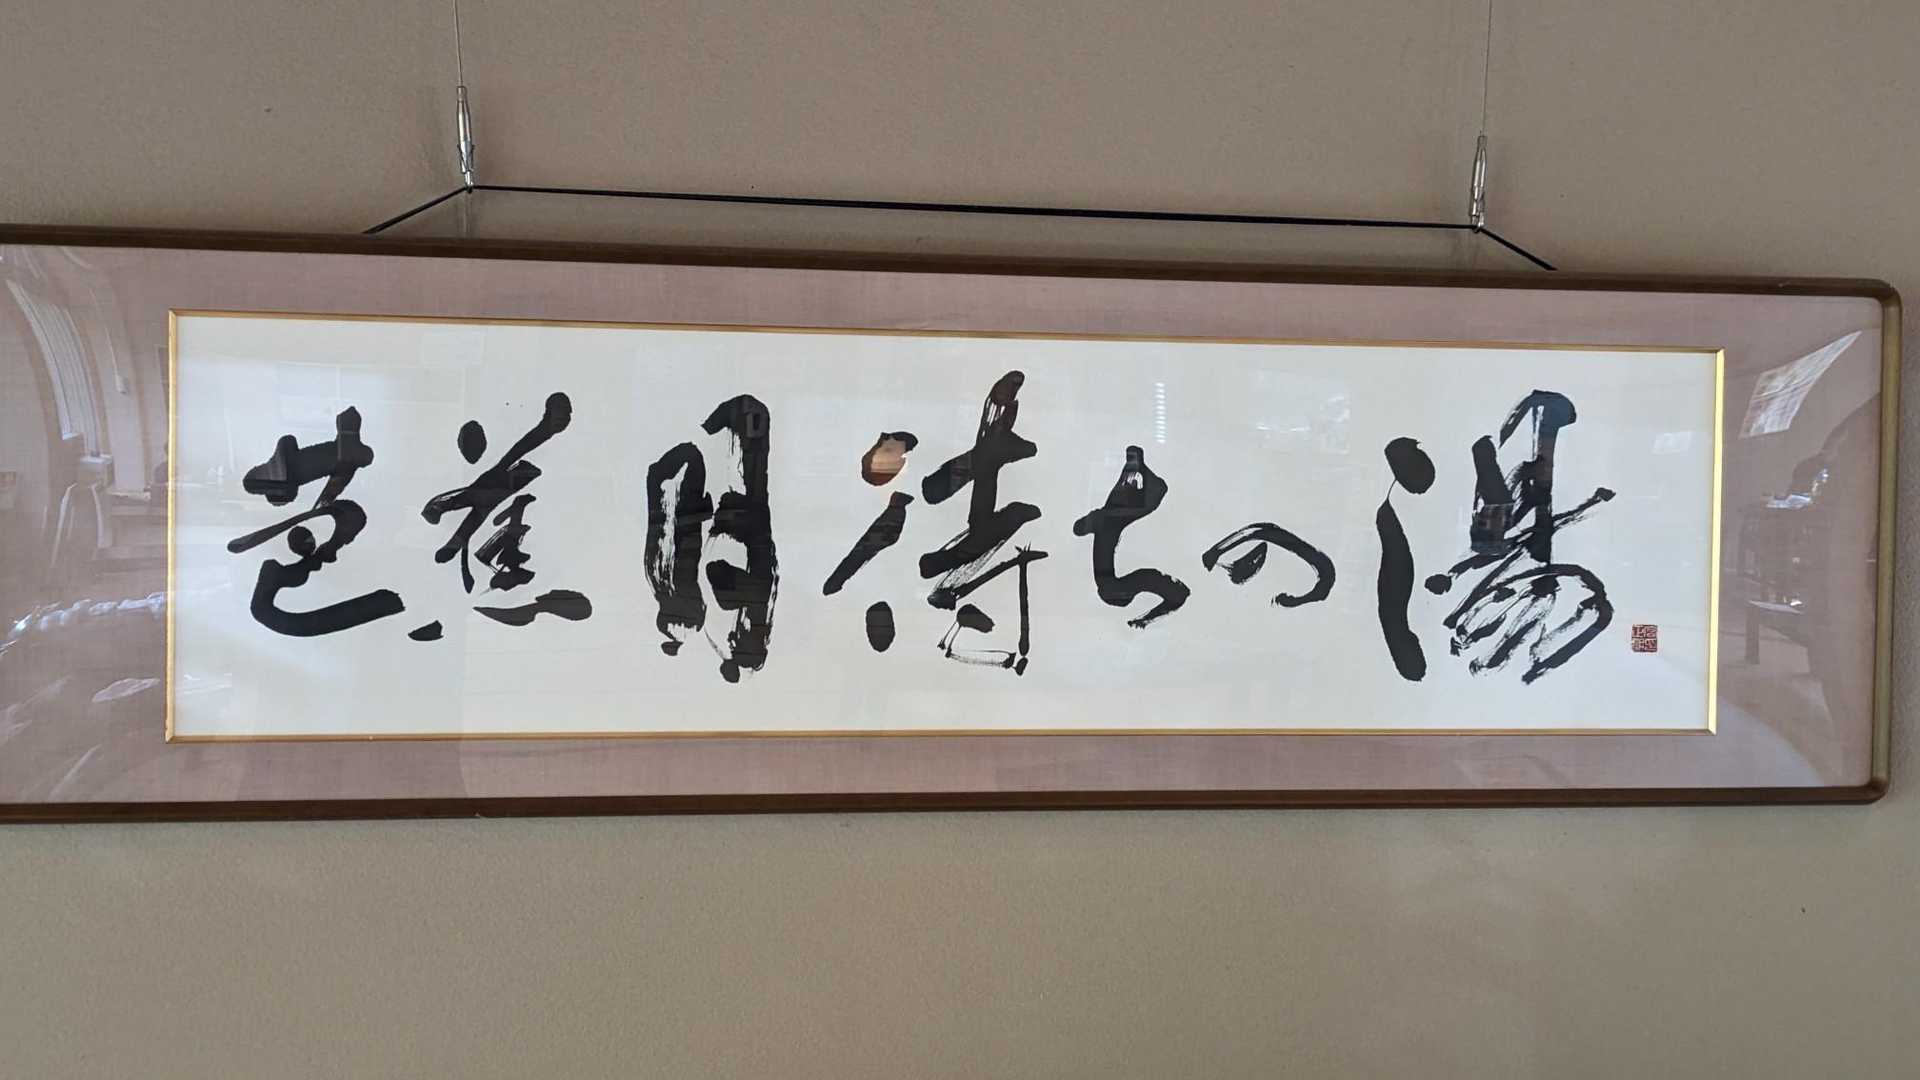 芭蕉月待ちの湯